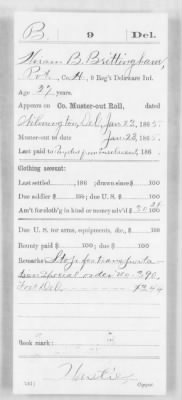 B. | 9 | Del.
Hiram B. Brittingham,
Pvt., Co. H, 9 Reg't Delaware Inf.
Age 27 years.
Appears on Co. Muster-out Roll, dated
Wilmington, Del, Jan 23, 1865.
Muster-out to date Jan 23, 1865.
Last paid to 186 .
Clothing account:
Last settled , 186 ; drawn since $ 100
Due soldier $ 100; due U. S. $ 100
Am't for cloth'g in kind or money adv'd $ 100
Due U. S. for arms, equipments, &c., $ 100
Bounty paid $ 100; due $ 100
Remarks: Stop for transporta-
tion Special order No. 390,
Fort Del. $3.44
Book mark:
Copyist.